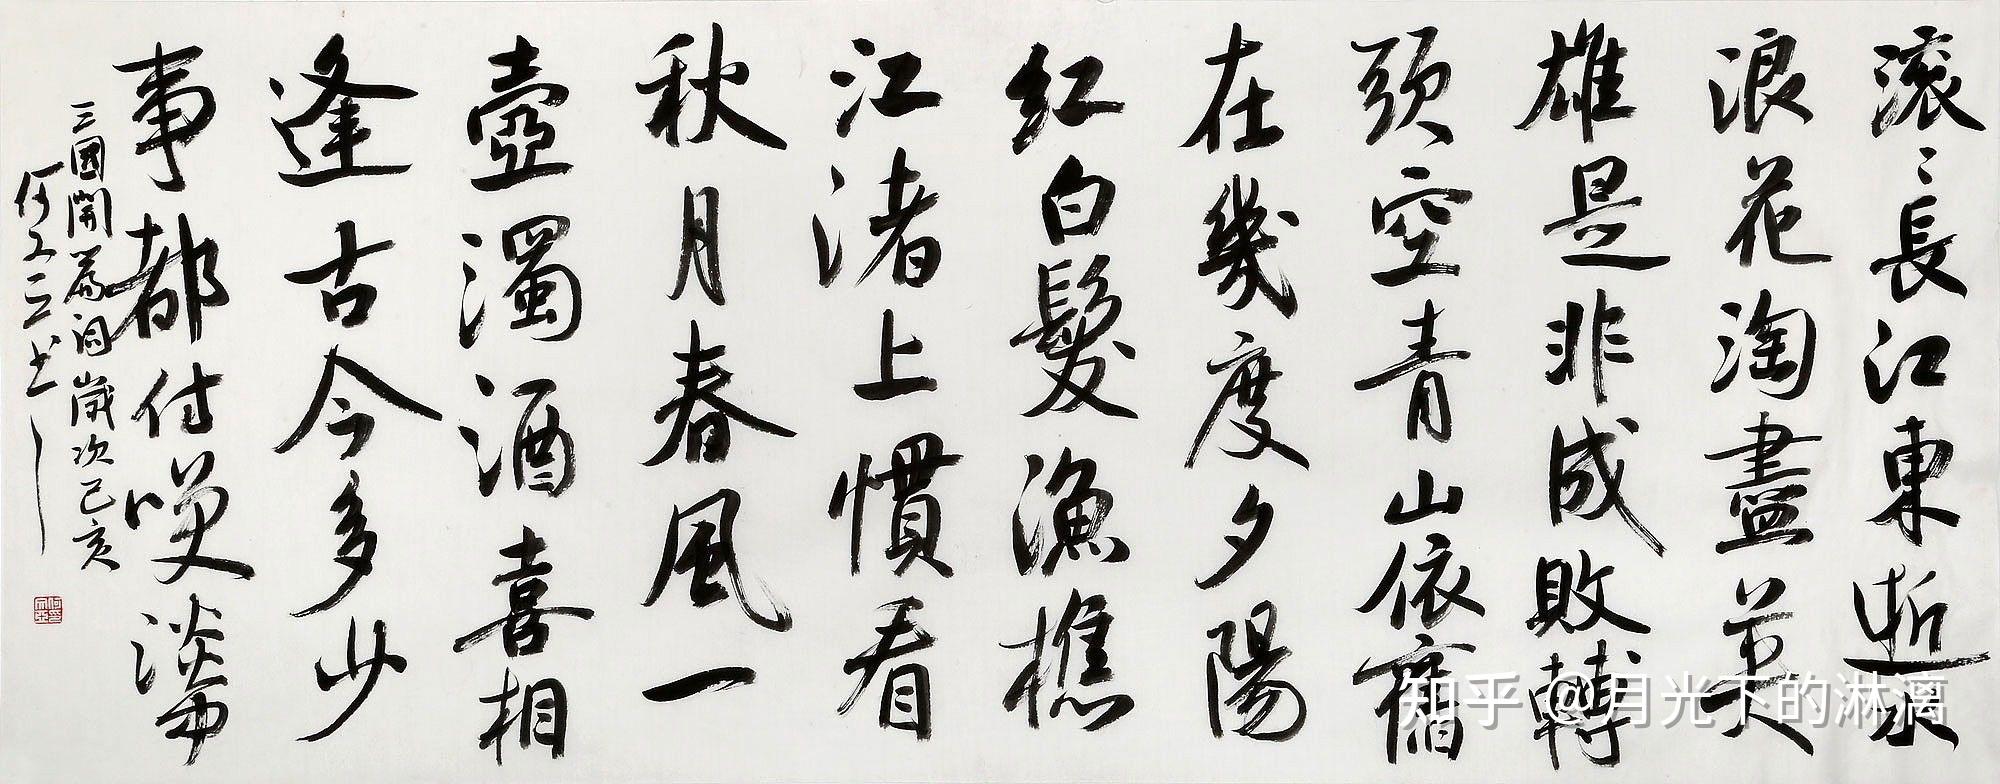 滚〻長江東逝水
浪花淘盡英
雄是非成敗轉
頭空青山依舊
在幾度夕陽
紅白髮漁樵
江渚上慣看
秋月春風一
壺濁酒喜相
逢古今多少
事都付咲談中
三國開篇詞歲次己亥
何 书
知乎 @月光下的淋漓